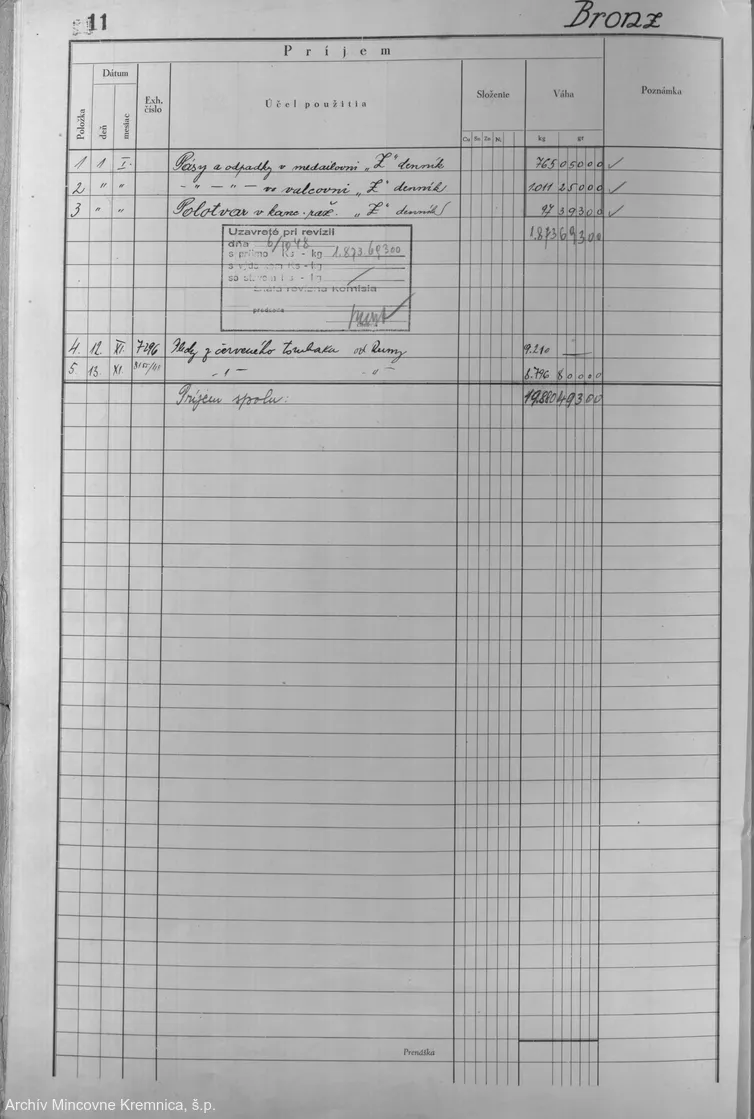 11
Bronz
Príjem
Položka
Dátum
deň
mesiac
Exh. číslo
Účel použitia
Složenie
Cu Sn Zn Ni
Váha
kg gr
Poznámka
1 1 I. Pásy a odpadky v medailovni „Z“ denník 765 05000 ✓
2 " " — " — " — vo valcovni „Z“ denník 1.011 25000 ✓
3 " " Polotvar v kanc. raž. „Z“ denník 97 39300 ✓
1.873 69300
Uzavreté pri revízii
dňa 6/10 48
s príjmo Ks - kg 1.873.69300
Ks - kg
Ks - kg
Znala revízna komisia
predseda
4. 12. XI. 7296 z červeného tombaku od 9.210 —
5. 13. XI. — " — — " — 8.796 80000
Príjem spolu: 19.880 49300
Prenáška
Archív Mincovne Kremnica, š.p.